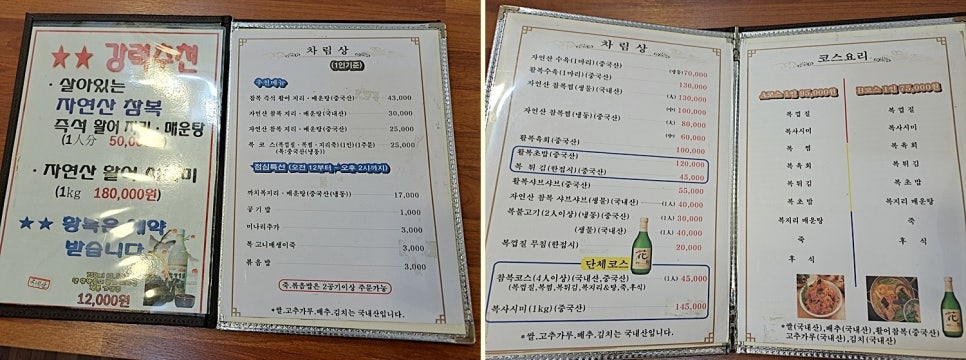 ★★ 강력추천
· 살아있는
자연산 참복
즉석 활어 지리 · 매운탕
(1人分 50,000원)
· 자연산 활어 사시미
(1kg 180,000원)
★★ 황복은 예약
받습니다
12,000원
차 림 상
(1인기준)
추천메뉴
참복 즉석 활어 지리 · 매운탕(중국산) 43,000
자연산 참복 지리 · 매운탕(국내산) 30,000
자연산 참복 지리 · 매운탕(중국산) 25,000
복 코 스(복껍질 · 복찜 · 지리죽)(1인)(1주문) 25,000
특(중국산(냉동))
점심특선 (오전 12부터 ~ 오후 2시까지)
까치복지리 · 매운탕(중국산(냉동)) 17,000
공 기 밥 1,000
미나리추가 3,000
복 고니배생이죽 3,000
볶 음 밥 3,000
죽,볶음밥은 2공기이상 주문가능
*쌀,고추가루,배추,김치는 국내산입니다.
차 림 상
자연산 수육(1마리)(중국산) (냉동)70,000
활복수육(1마리)(중국산) 130,000
자연산 참복찜(생물)(국내산) (大) 130,000
(中) 100,000
자연산 참복찜(냉동)(중국산) (大) 80,000
(中) 60,000
활복육회(중국산) 100,000
활복초밥(중국산) 120,000
복 튀김(한접시)(중국산) 45,000
활복샤브샤브(중국산) 55,000
자연산 참복 샤브샤브(생물)(국내산) (1人) 40,000
복불고기(2人이상)(냉동)(중국산) (1人) 30,000
(생물)(국내산) (1人) 40,000
복껍질 무침(한접시) 20,000
단체코스
참복코스(4人이상)(국내산,중국산) (1人) 45,000
(복껍질,복찜,복튀김,복지리&탕,죽,후식)
복사시미(1kg)(중국산) 145,000
*쌀,고추가루,배추,김치는 국내산입니다.
코스요리
복 껍 질
복사시미
복 찜
복 육 회
복 튀 김
복 초 밥
복지리 매운탕
죽
후 식
복 껍 질
복사시미
복 육 회
복 튀 김
복 초 밥
복지리 매운탕
죽
후 식
*쌀(국내산),배추(국내산),활어참복(중국산)
고추가루(국내산),김치(국내산)